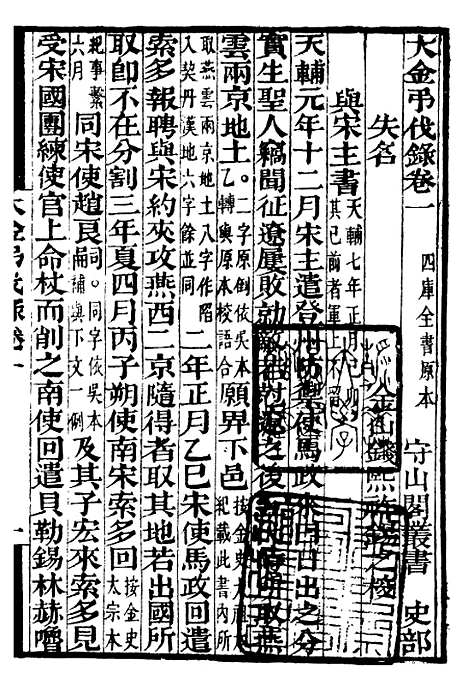 大金弔伐錄卷一
四庫全書原本
守山閣叢書 史部
失名
金山錢熙祚錫之校
與宋主書
天輔七年正月
其已前者軍上不
天輔元年十二月宋主遣登州防禦使馬政來曰日出之分
實生聖人竊聞征遼屢敗勍敵若克遼之後
取燕
雲兩京地土
乙轉輿原本校語
二字原倒依吳本
願畀下邑
按金史太祖
紀載此書內所
取燕雲兩京地土八字作陷
入契丹漢地六字餘並同
二年正月乙巳宋使馬政回遣
索多報聘與宋約夾攻燕西二京隨得者取其地若出國所
取卽不在分割三年夏四月丙子朔使南宋索多回
按金史
太宗本
紀事繫
六月
同宋使趙良嗣
同字依吳本
補與下文一例
及其子宏來索多見
受宋國團練使官上命杖而削之南使回遣貝勒錫林赫嚕
大金弔伐錄卷一
一